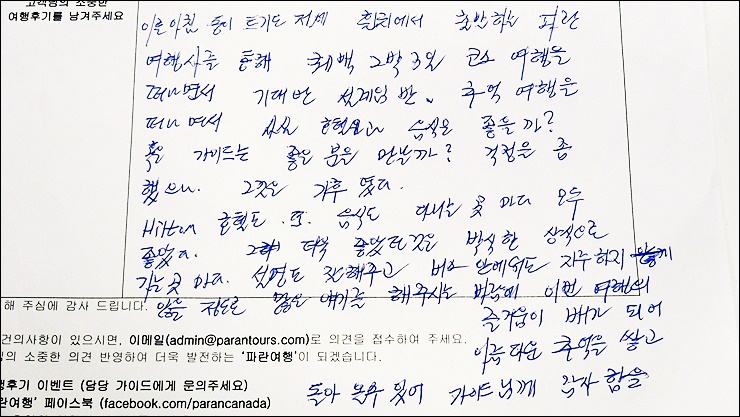 고객님의 소중한
여행후기를 남겨주세요
이른아침 동이 트기도 전에 출발하는 파란
여행사를 통해 퀘백 2박 3일 코스 여행을
떠나면서 기대반 설레임 반. 추억 여행을
떠나면서 호텔과 음식은 좋을까?
혹 가이드는 좋은 분을 만날까? 걱정을 좀
했으나. 그것은 기우 였다.
Hilton 호텔도 또 음식도 다니는 곳 마다 모두
좋았다. 더욱 좋았던것은 박식한 상식으로
가는곳 마다 설명도 잘해주고 버스 안에서도 지루하지 않게
않을 정도로 많은 얘기를 해주시는 바람에 이번 여행의
해 주심에 감사 드립니다.
즐거움이 배가 되어
건의사항이 있으시면, 이메일(admin@parantours.com)로 의견을 접수하여 주세요.
의 소중한 의견 반영하여 더욱 발전하는 '파란여행'이 되겠습니다.
아름다운 추억을 쌓고
행후기 이벤트 (담당 가이드에게 문의주세요)
돌아 올수 있어 가이드님께 감사 함을
란여행' 페이스북 (facebook.com/parancanada)